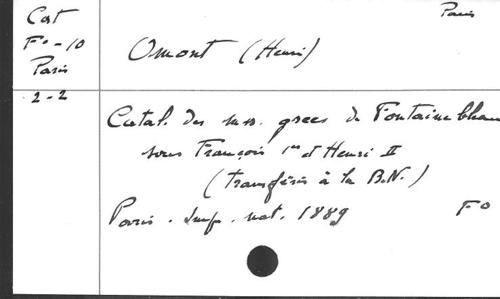 Cat
F° - 10
Paris
2 - 2
Paris
Omont (Henri)
Catal. des mss. grecs de Fontainebleau
sous François 1er et Henri II
(transférés à la B.N.)
Paris. Imp. nat. 1889 F°